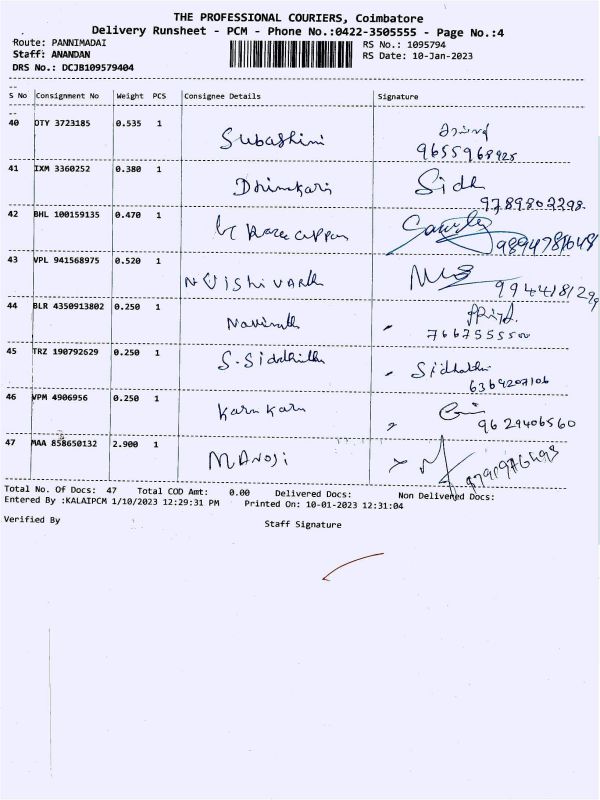 THE PROFESSIONAL COURIERS, Coimbatore
Delivery Runsheet - PCM - Phone No.:0422-3505555 - Page No.:4
Route: PANNIMADAI RS No.: 1095794
Staff: ANANDAN RS Date: 10-Jan-2023
DRS No.: DCJB109579404
S No Consignment No Weight PCS Consignee Details Signature
40 DTY 3723185 0.535 1 Subashini
9655968925
41 IXM 3360252 0.380 1 Dhinakari Sidh
9789802298
42 BHL 100159135 0.470 1
9894781648
43 VPL 941568975 0.520 1 N Vishivarth
9944181299
44 BLR 4350913802 0.250 1 Navinath Priya
7667555500
45 TRZ 190792629 0.250 1 S. Siddhith Sidhathi
6369207106
46 VPM 4906956 0.250 1 Karn Karn
9629406560
47 MAA 858650132 2.900 1 MANOJI
Total No. Of Docs: 47 Total COD Amt: 0.00 Delivered Docs: Non Delivered Docs:
Entered By :KALAIPCM 1/10/2023 12:29:31 PM Printed On: 10-01-2023 12:31:04
Verified By Staff Signature